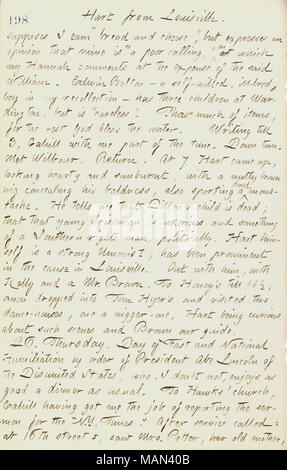 198
Hart from Louisville.
supposes I earn bread and cheese," but expresses an
opinion that mine is "a poor calling," at which
my Hannah comments at the expense of the said
William. Edwin Bolton - a self-willed, ill-bred
boy in my recollection - has three children at War-
dington, but is "careless". Thus much of items,
for the rest God bless the writer. Writing till
3, Cahill with me part of the time. Down town.
Met Wilbour. Return. At 7 Hart came up,
looking hearty and sunburnt, with a nutty brown
wig concealing his baldness, also sporting a mous-
tache. He tells me that Dillard's child is dead;
that that young Virginian is uxorious and something
of a Southern-right man, politically. Hart him-
self is a strong Unionist; has been prominent
in the cause in Louisville. Out with him, with
Kelly and a Mr Brown. To Honey's till 10½,
anon dropped into Tom Hyer's and visited two
dance-houses, one a nigger-one, Hart being curious
about such scenes and Brown our guide.
26. Thursday. Day of Fast and National
Humiliation by order of President Abe Lincoln of
the Disunited States, who, I doubt not, enjoys as
good a dinner as usual. To Hawks' church,
Cahill having got me the job of reporting the ser-
mon for the "N.Y. Times." After service called
at 16th street, saw Mrs. Potter, her old mother,
alamy
Image ID: MAN40B
www.alamy.com